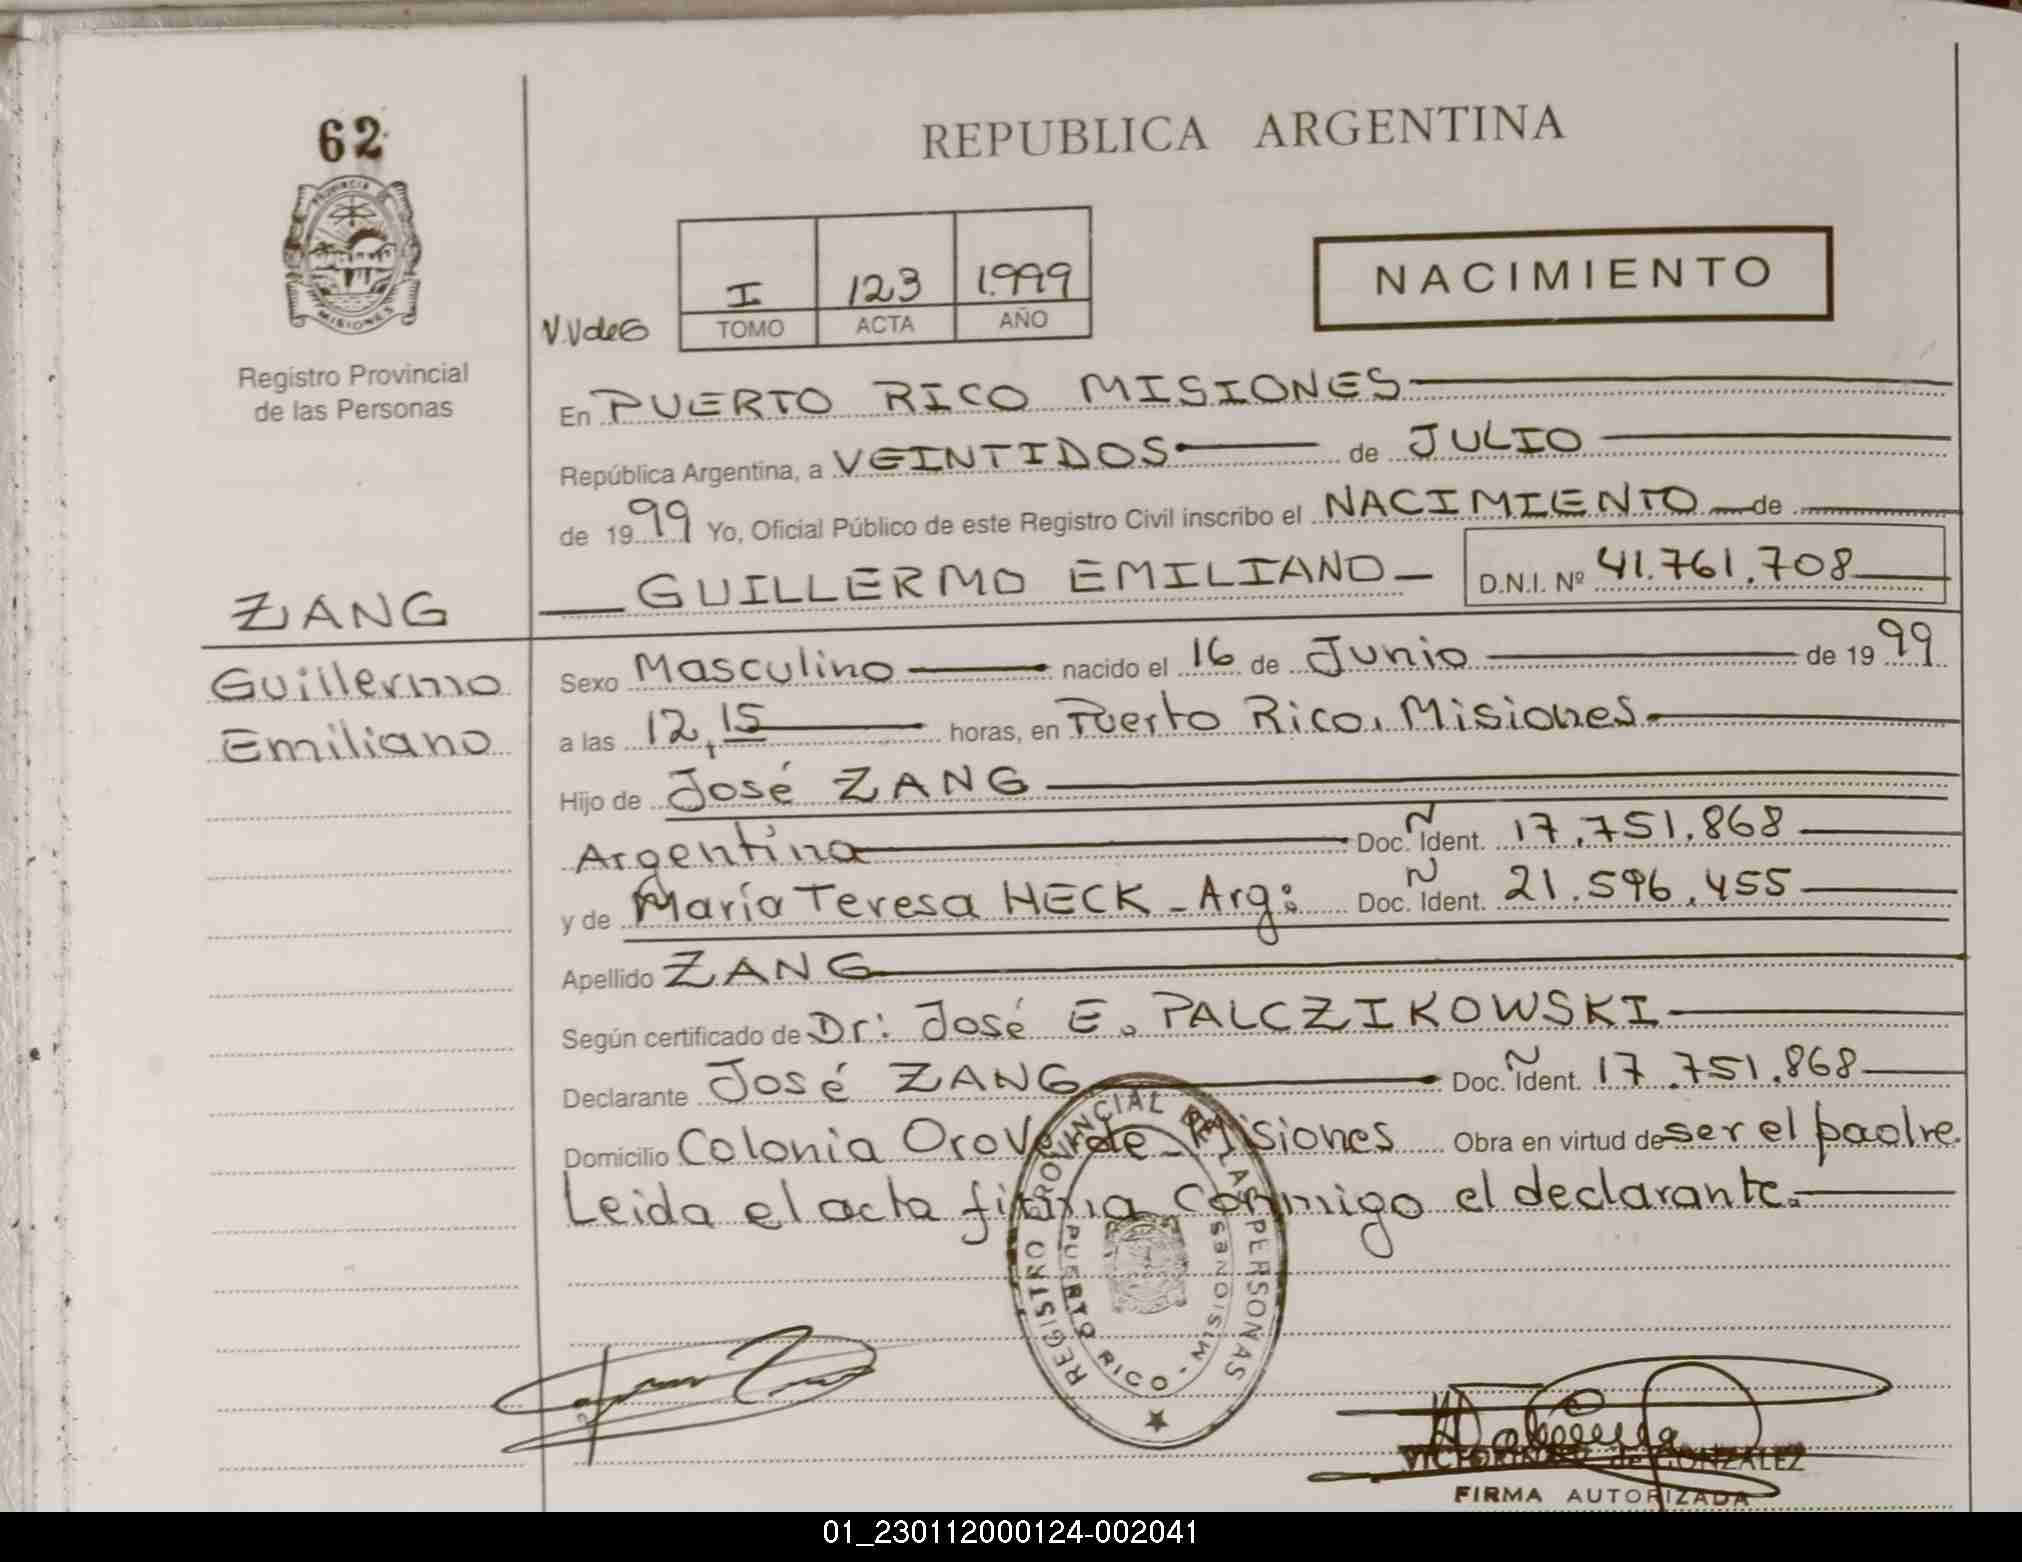 62
REPUBLICA ARGENTINA
PROVINCIA DE
MISIONES
Registro Provincial
de las Personas
V.V de G
I 123 1.999
TOMO ACTA AÑO
NACIMIENTO
En PUERTO RICO MISIONES
República Argentina, a VEINTIDOS de JULIO
de 1999 Yo, Oficial Público de este Registro Civil inscribo el NACIMIENTO de
GUILLERMO EMILIANO D.N.I. Nº 41.761.708
ZANG
Guillermo
Emiliano
Sexo Masculino nacido el 16 de Junio de 1999
a las 12,15 horas, en Puerto Rico, Misiones
Hijo de José ZANG
Argentina Doc. Ñ Ident. 17.751.868
y de María Teresa HECK - Arg: Doc. Ñ Ident. 21.596.455
Apellido ZANG
Según certificado de Dr: José E. PALCZIKOWSKI
Declarante José ZANG Doc. Ñ Ident. 17.751.868
Domicilio Colonia Oro Verde - Misiones Obra en virtud de ser el padre.
Leida el acta firma conmigo el declarante.
REGISTRO PROVINCIAL DE LAS PERSONAS
PUERTO RICO - MISIONES
de GONZALEZ
FIRMA AUTORIZADA
01_230112000124-002041